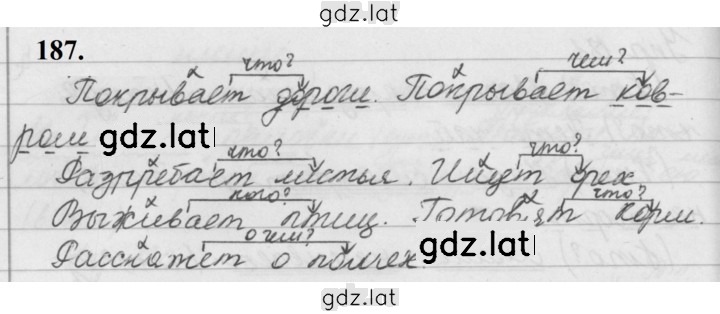 gdz.lat
187.
что? чем?
Покрывает дороги. Покрывает ков-
ром gdz.lat
что? что?
Разгребает листья. Ищет орех
кого? что?
Выживает птиц. Готовят корм.
о чём? gdz.lat
Расскажет о
gdz.lat